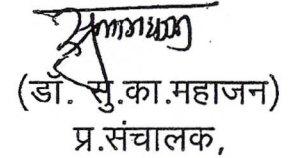 (डॉ. सु.का.महाजन)
प्र.संचालक,